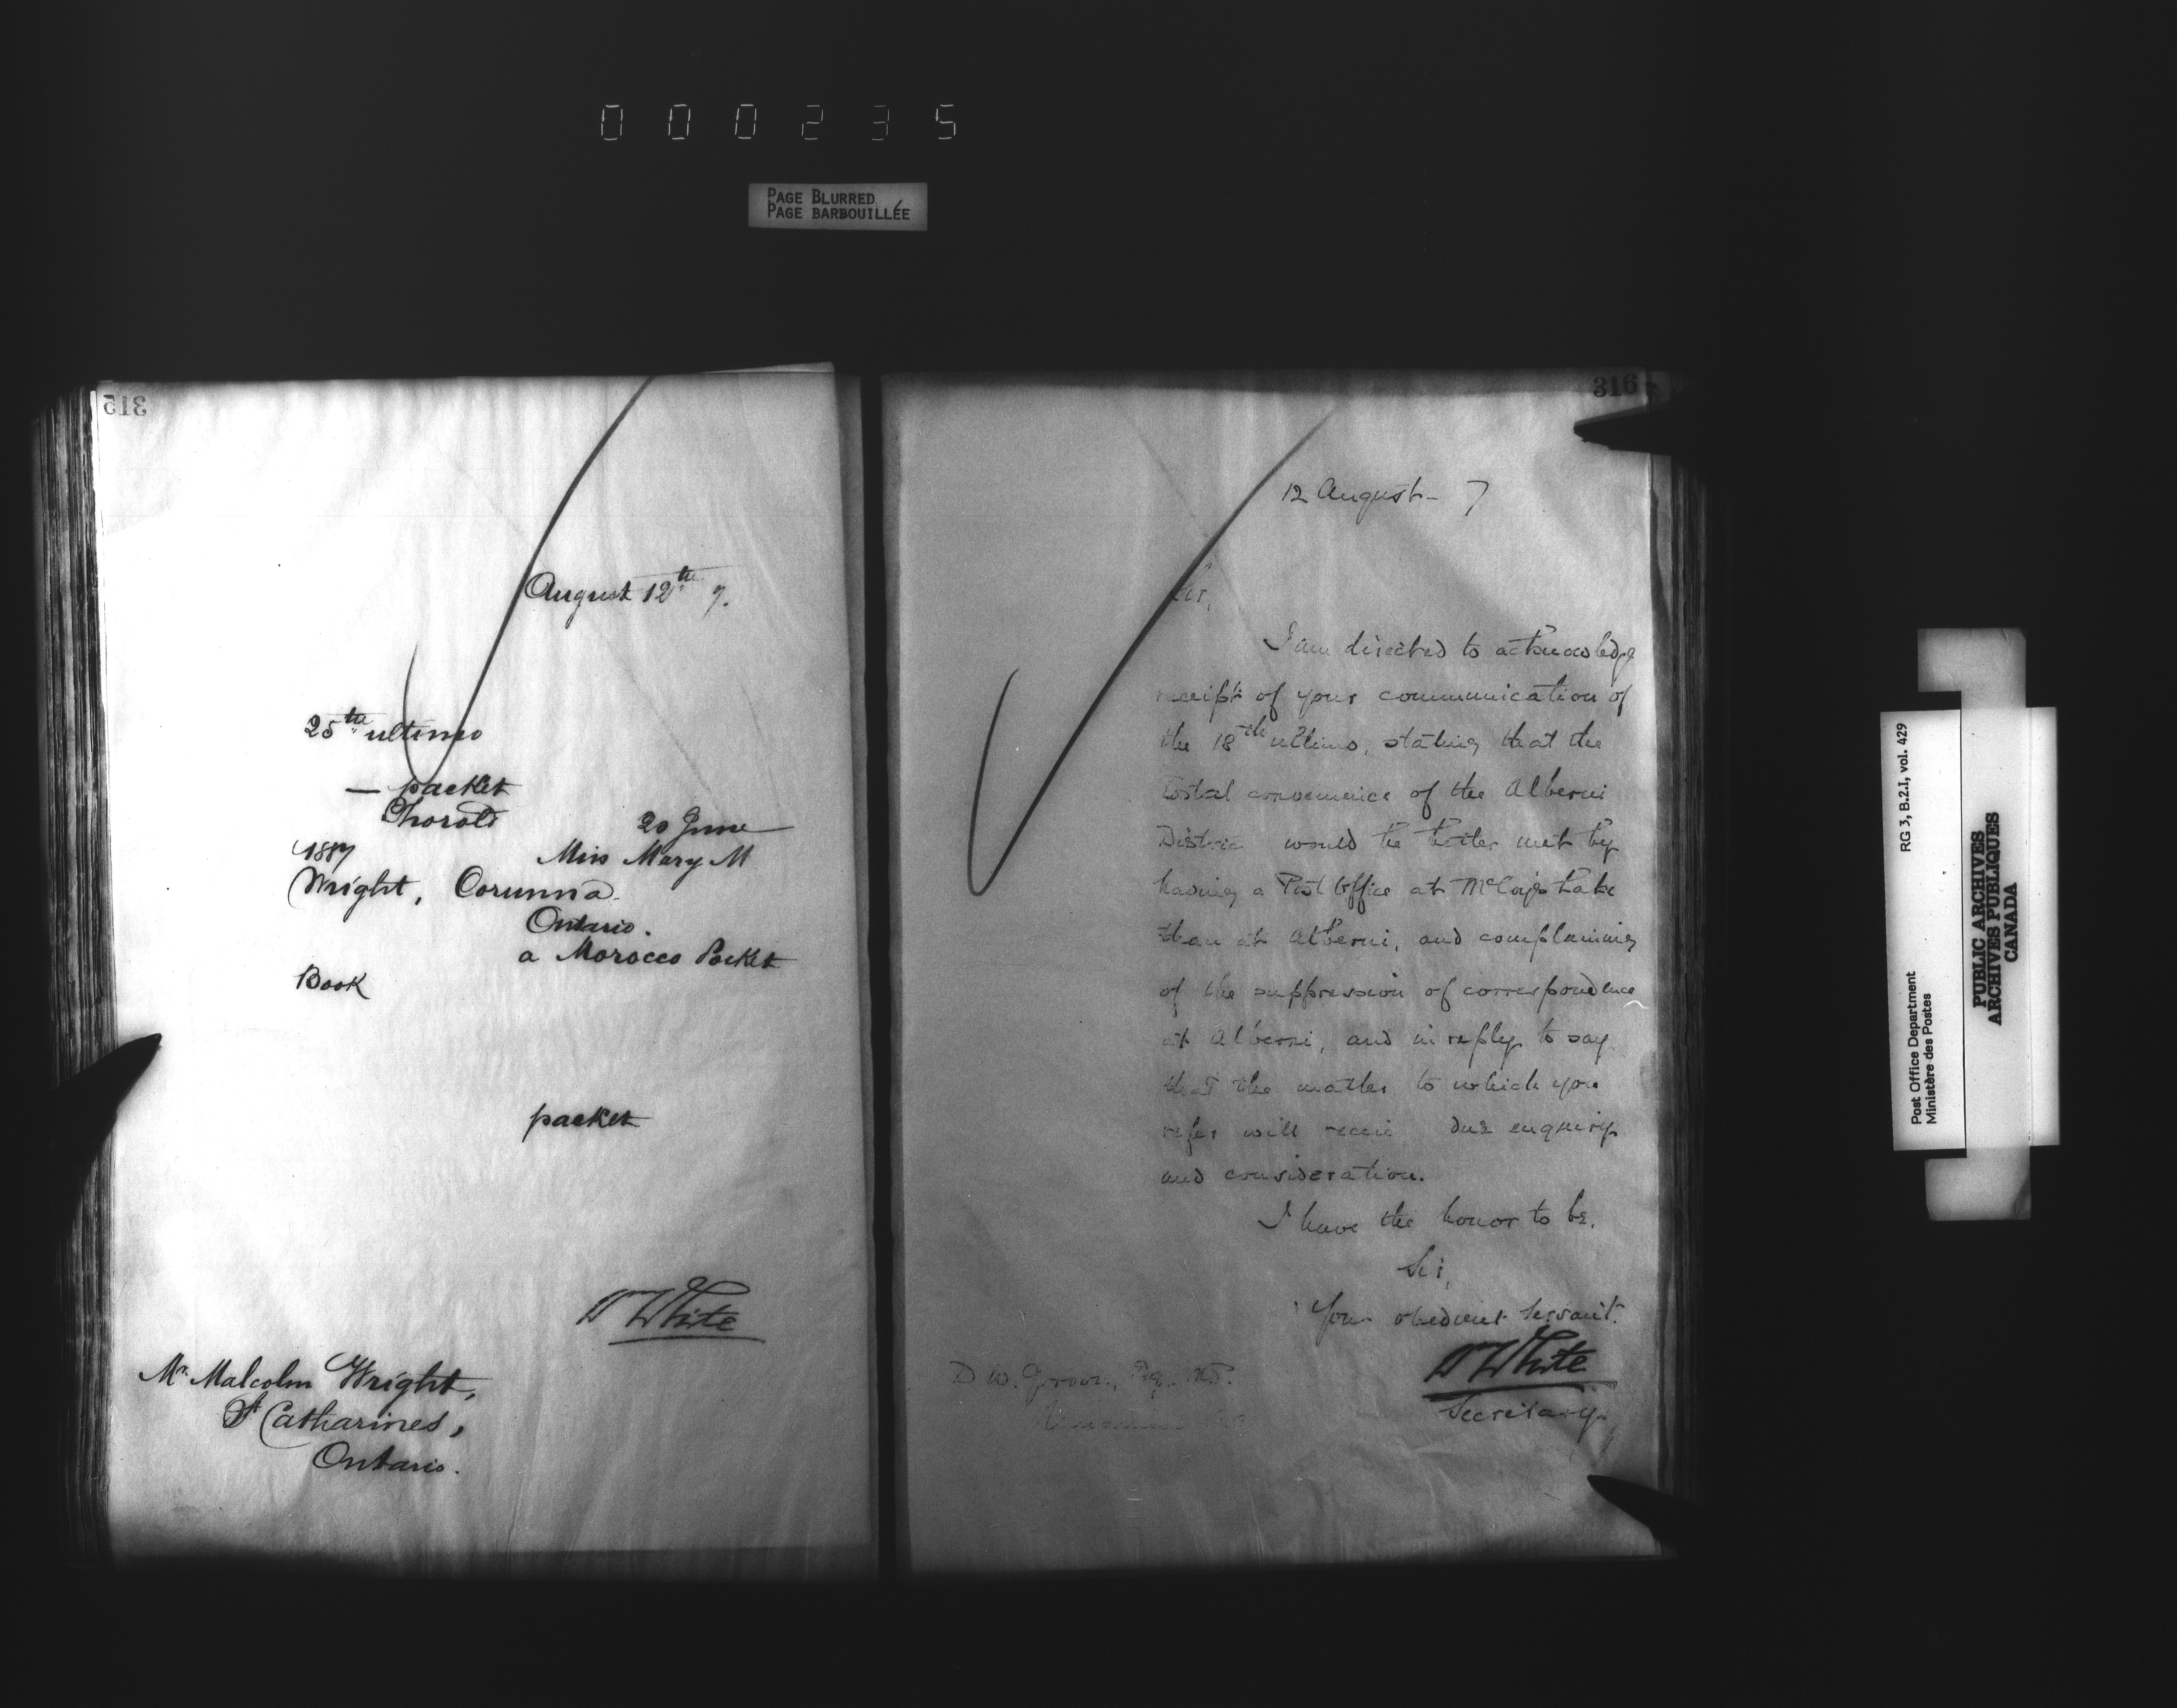 000235
PAGE BLURRED
PAGE BARBOUILLÉE
315
August 12th 7.
25th ultimo
— packet
Thorold
20 June
1887
Miss Mary M
Wright, Corunna.
Ontario.
a Morocco Pocket
Book
packet
W White
Mr. Malcolm Wright,
St Catharines,
Ontario.
316
12 August - 7
Sir,
I am directed to acknowledge
receipt of your communication of
the 18th ultimo, stating that the
Postal convenience of the Alberni
District would be better met by
having a Post Office at McCoy's Lake
than at Alberni, and complaining
of the suppression of correspondence
at Alberni, and in reply to say
that the matter to which you
refer will receive due enquiry
and consideration.
I have the honor to be,
Sir,
Your obedient Servant.
W White
Secretary
D W. Esq. M.P.
RG 3, B.2.I, vol. 429
Post Office Department
Ministère des Postes
PUBLIC ARCHIVES
ARCHIVES PUBLIQUES
CANADA